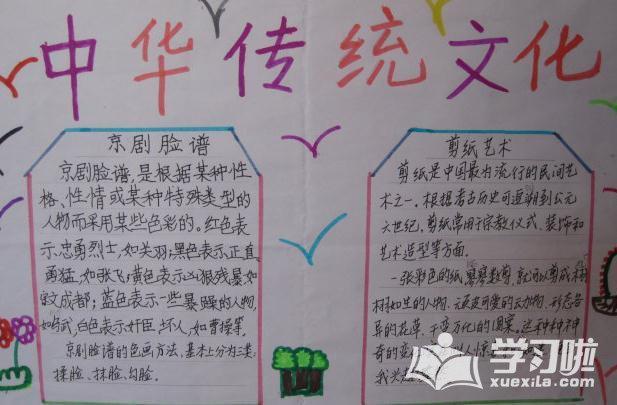 中华传统文化
京剧脸谱
京剧脸谱,是根据某种性
格、性情或某种特殊类型的
人物而采用某些色彩的。红色表
示忠勇烈士,如关羽;黑色表示正直
勇猛,如张飞;黄色表示凶狠残暴如
宇文成都;蓝色表示一些暴躁的人物,
如 白色表示奸臣、坏人,如曹操等。
京剧脸谱的色画方法,基本上分为三类:
揉脸、抹脸、勾脸。
剪纸艺术
剪纸是中国最为流行的民间艺
术之一,根据考古历史可追溯到公元
六世纪,剪纸常用于宗教仪式、装饰和
艺术造型等方面。
一张彩色的纸 就可以剪成栩
栩如生的人物、 可爱的动物、形态各
异的花草、千变万化的图案。这种神
奇的
我
学习啦
xuexila.com